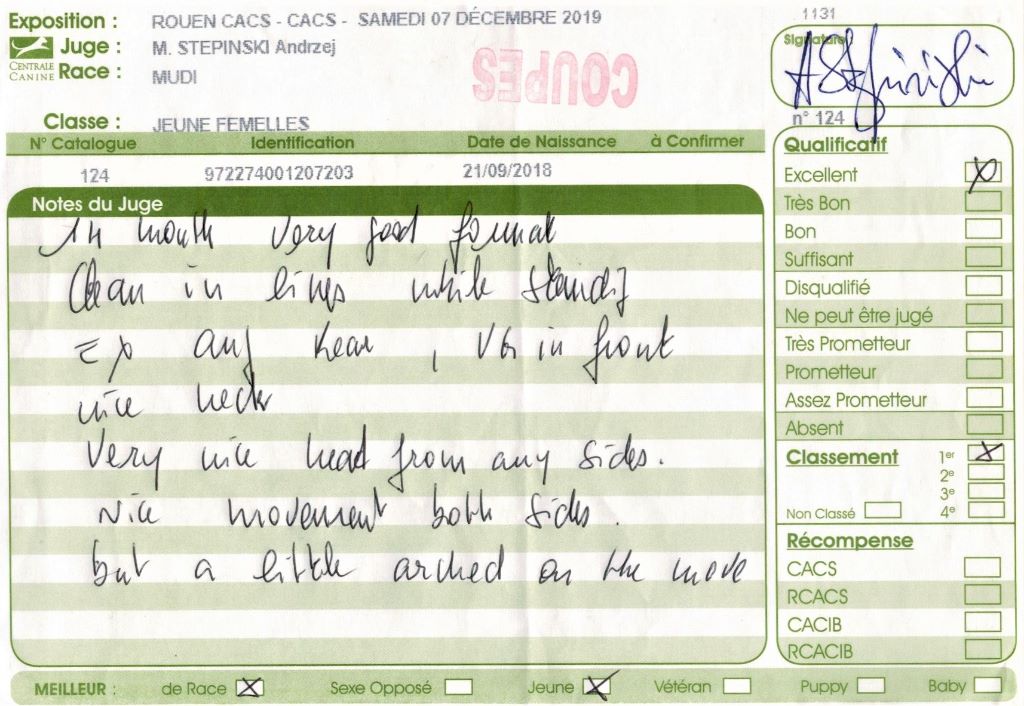 Exposition : ROUEN CACS - CACS - SAMEDI 07 DÉCEMBRE 2019
1131
CENTRALE CANINE
Juge : M. STEPINSKI Andrzej
Race : MUDI
COUPES
Signature
AStepinski
Classe : JEUNE FEMELLES
n° 124
N° Catalogue Identification Date de Naissance à Confirmer
124 972274001207203 21/09/2018
Notes du Juge
14 month very good format
Clean in lines while standig
Ex ang rear , VG in front
nice neck
Very nice head from any sides.
Nice movement both sides.
but a little arched on the move
Qualificatif
Excellent X
Très Bon
Bon
Suffisant
Disqualifié
Ne peut être jugé
Très Prometteur
Prometteur
Assez Prometteur
Absent
Classement 1er X
2e
3e
Non Classé 4e
Récompense
CACS
RCACS
CACIB
RCACIB
MEILLEUR : de Race X Sexe Opposé Jeune X Vétéran Puppy Baby